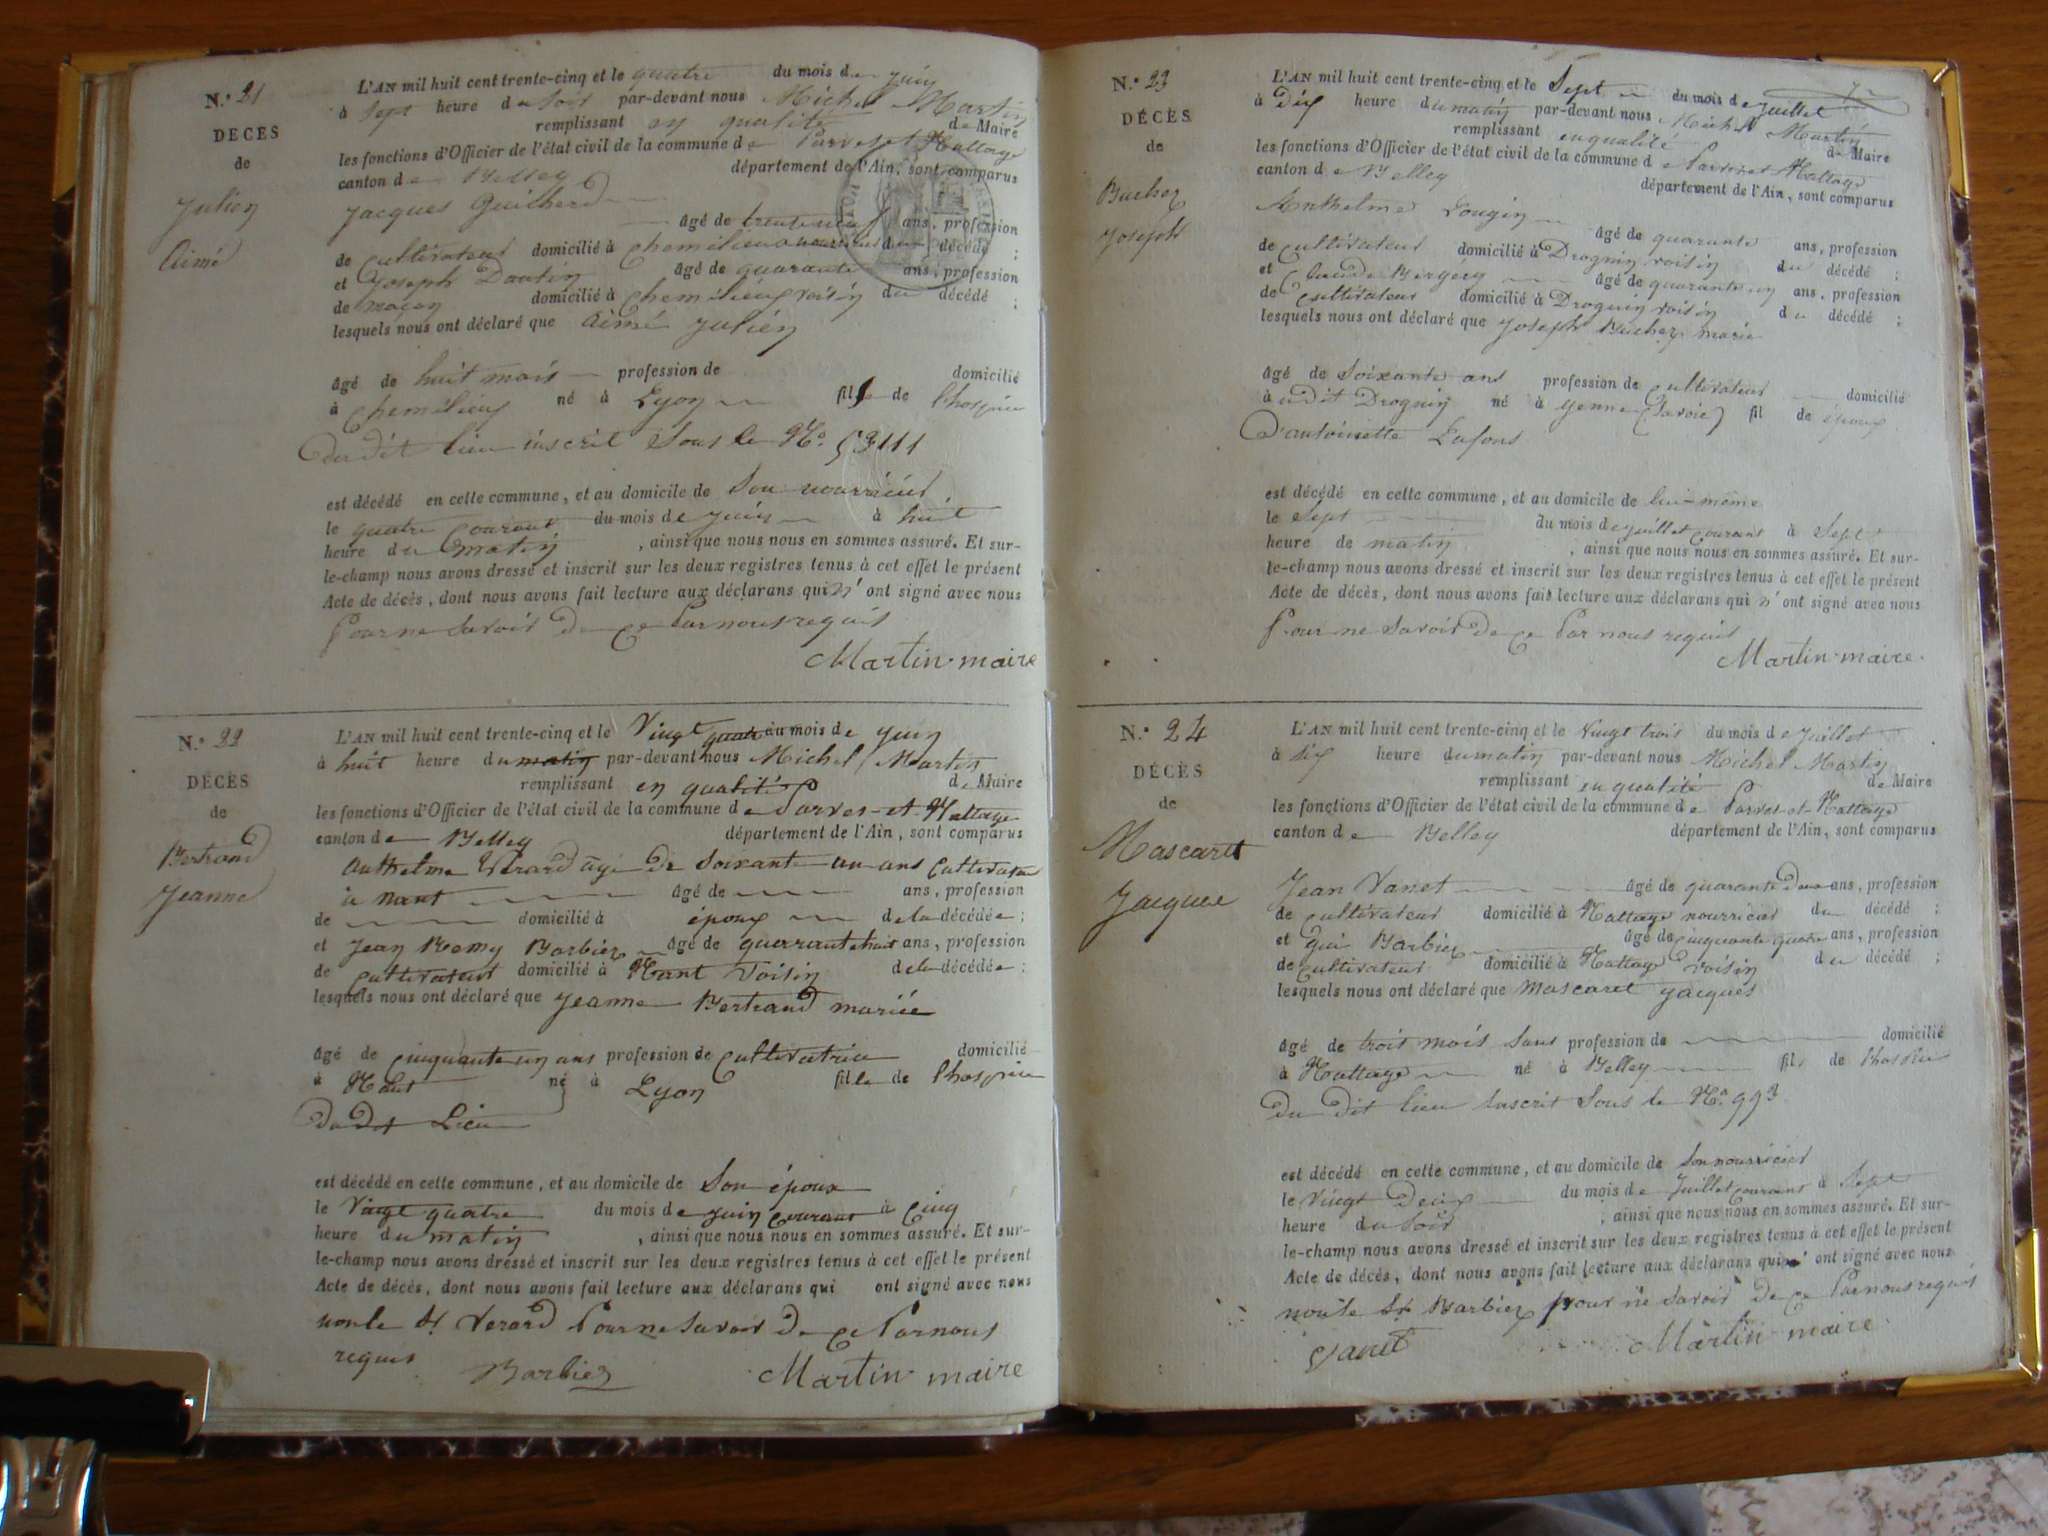 N.° 21
DÉCÈS
de
Julien
Aimé
L'AN mil huit cent trente-cinq et le quatre du mois de juin
à sept heure du soir par-devant nous Michel Martin
remplissant en qualité de Maire
les fonctions d'Officier de l'état civil de la commune de Parves et Nattage
canton de Belley département de l'Ain, sont comparus
Jacques Guilherd
âgé de trente neuf ans, profession
de cultivateur domicilié à Chemilieu nourricier du décédé ;
et Joseph Dantin âgé de quarante ans, profession
de maçon domicilié à Chemilieu voisin du décédé ;
lesquels nous ont déclaré que Aimé Julien
âgé de huit mois profession de domicilié
à Chemilieu né à Lyon fils de l'hospice
du dit lieu inscrit sous le N° 53111
est décédé en cette commune, et au domicile de son nourricier
le quatre courant du mois de juin à huit
heure du matin , ainsi que nous nous en sommes assuré. Et sur-
le-champ nous avons dressé et inscrit sur les deux registres tenus à cet effet le présent
Acte de décès, dont nous avons fait lecture aux déclarans qui n'ont signé avec nous
Pour ne savoir de ce Par nous requis
Martin maire
N.° 22
DÉCÈS
de
Bertrand
Jeanne
L'AN mil huit cent trente-cinq et le Vingt quatre du mois de juin
à huit heure du matin par-devant nous Michel Martin
remplissant en qualité de Maire
les fonctions d'Officier de l'état civil de la commune de Parves et Nattage
canton de Belley département de l'Ain, sont comparus
Anthelme Vérard âgé de soixante un ans Cultivateur
à Nant âgé de ans, profession
de domicilié à époux de la décédée ;
et Jean Remy Barbier âgé de quarante huit ans, profession
de cultivateur domicilié à Nant Voisin de la décédée ;
lesquels nous ont déclaré que Jeanne Bertrand mariée
âgé de cinquante un ans profession de cultivatrice domicilié
à Nant né à Lyon fille de l'hospice
du dit Lieu
est décédé en cette commune, et au domicile de Son époux
le Vingt quatre du mois de juin courant à Cinq
heure du matin , ainsi que nous nous en sommes assuré. Et sur-
le-champ nous avons dressé et inscrit sur les deux registres tenus à cet effet le présent
Acte de décès, dont nous avons fait lecture aux déclarans qui ont signé avec nous
Verard Pour ne savoir de ce Par nous
requis Barbier Martin maire
N.° 23
DÉCÈS
de
Buchez
Joseph
L'AN mil huit cent trente-cinq et le Sept du mois de juillet
à dix heure du matin par-devant nous Michel Martin
remplissant en qualité de Maire
les fonctions d'Officier de l'état civil de la commune de Parves et Nattage
canton de Belley département de l'Ain, sont comparus
Anthelme Lougin
âgé de quarante ans, profession
de cultivateur domicilié à Drognin voisin du décédé ;
et Claude Bergery âgé de quarante un ans, profession
de cultivateur domicilié à Drognin voisin du décédé ;
lesquels nous ont déclaré que Joseph Buchez marié
âgé de soixante ans profession de cultivateur domicilié
à u dit Drognin né à Yenne (Savoie) fil de époux
d'antoinette Lafons
est décédé en cette commune, et au domicile de lui-même
le sept du mois de juillet courant à sept
heure de matin , ainsi que nous nous en sommes assuré. Et sur-
le-champ nous avons dressé et inscrit sur les deux registres tenus à cet effet le présent
Acte de décès, dont nous avons fait lecture aux déclarans qui n'ont signé avec nous
Pour ne savoir de ce Par nous requis
Martin maire
N.° 24
DÉCÈS
de
Mascaret
Jacques
L'AN mil huit cent trente-cinq et le Vingt trois du mois de juillet
à six heure du matin par-devant nous Michel Martin
remplissant en qualité de Maire
les fonctions d'Officier de l'état civil de la commune de Parves et Nattage
canton de Belley département de l'Ain, sont comparus
Jean Vanet âgé de quarante deux ans, profession
de cultivateur domicilié à Nattage nourricier du décédé ;
et gui Barbier âgé de cinquante quatre ans, profession
de cultivateur domicilié à Nattage voisin du décédé ;
lesquels nous ont déclaré que Mascaret Jacques
âgé de trois mois sans profession de domicilié
à Nattage né à Belley fils de l'hospice
du dit lieu inscrit sous le N° 993
est décédé en cette commune, et au domicile de son nourricier
le Vingt deux du mois de juillet courant à sept
heure du soir , ainsi que nous nous en sommes assuré. Et sur-
le-champ nous avons dressé et inscrit sur les deux registres tenus à cet effet le présent
Acte de décès, dont nous avons fait lecture aux déclarans qui ont signé avec nous
Barbier pour ne savoir de ce Par nous requis
Vanet Martin maire